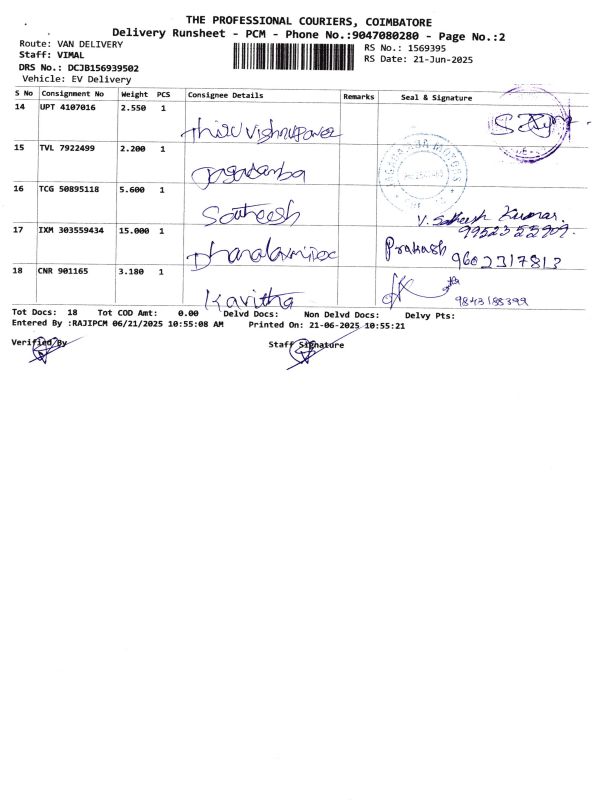 THE PROFESSIONAL COURIERS, COIMBATORE
Delivery Runsheet - PCM - Phone No.:9047080280 - Page No.:2
Route: VAN DELIVERY
RS No.: 1569395
Staff: VIMAL
RS Date: 21-Jun-2025
DRS No.: DCJB156939502
Vehicle: EV Delivery
S No Consignment No Weight PCS Consignee Details Remarks Seal & Signature
14 UPT 4107016 2.550 1
15 TVL 7922499 2.200 1
16 TCG 50895118 5.600 1 Satheesh V. Satheesh Kumar.
17 IXM 303559434 15.000 1 Prakash 9602317813
18 CNR 901165 3.180 1 Kavitha 9843188399
Tot Docs: 18 Tot COD Amt: 0.00 Delvd Docs: Non Delvd Docs: Delvy Pts:
Entered By :RAJIPCM 06/21/2025 10:55:08 AM Printed On: 21-06-2025 10:55:21
Verified By Staff Signature